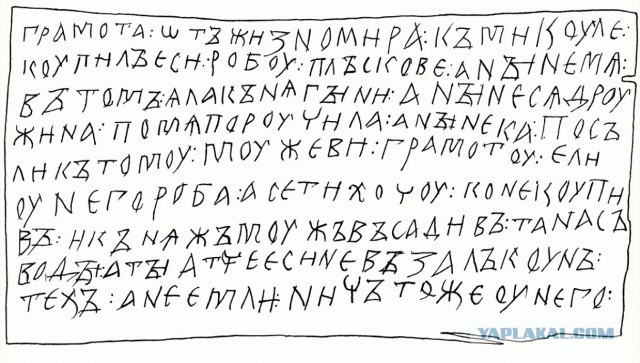 ГРАМОТА : ѠТЪ ЖИЗНОМИРА : КЪ МИКОУЛЕ :
КОУПИЛЪ ЕСИ : РОБОУ : ПЛЪСКОВЕ : А НЫНЕ МѦ :
ВЪ ТОМЪ : ѦЛА КЪНѦГЫНИ : А НЫНЕ СѦ ДРОУ
ЖИНА : ПО МѦ ПОРОУЧИЛА : А НЫНЕ КА : ПОСЪ
ЛИ КЪ ТОМОУ : МОУЖЕВИ : ГРАМОТОУ : ЕЛИ
ОУ НЕГО РОБА : А СЕ ТИ ХОЧОУ : КОНЕ КОУПИ
ВЪ : И КЪНѦЖЪ МОУЖЪ ВЪСАДИВЪ : ТА НА СЪ
ВОДЫ : А ТЫ АТЧЕ ЕСИ НЕ ВЪЗАЛЪ КОУНЪ :
ТЕХЪ : А НЕ ЕМЛИ : НИЧЪТОЖЕ ОУ НЕГО :
YAPLAKAL.COM